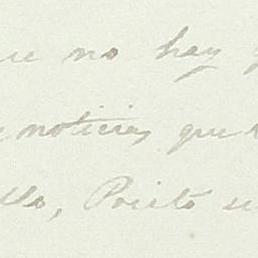 ue no hay
noticias que
llo, Prieto